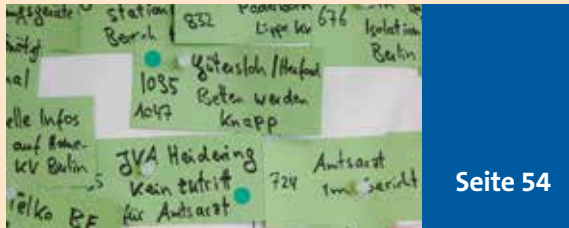 station
Bereich
832
Lippe KV
676
Isolation
Berlin
1035
1047
Gütersloh / Herford
Betten werden
knapp
elle Infos
auf
KV Berlin
JVA Heidering
kein zutritt
für Amtsarzt
724
Amtsarzt
BE
Seite 54